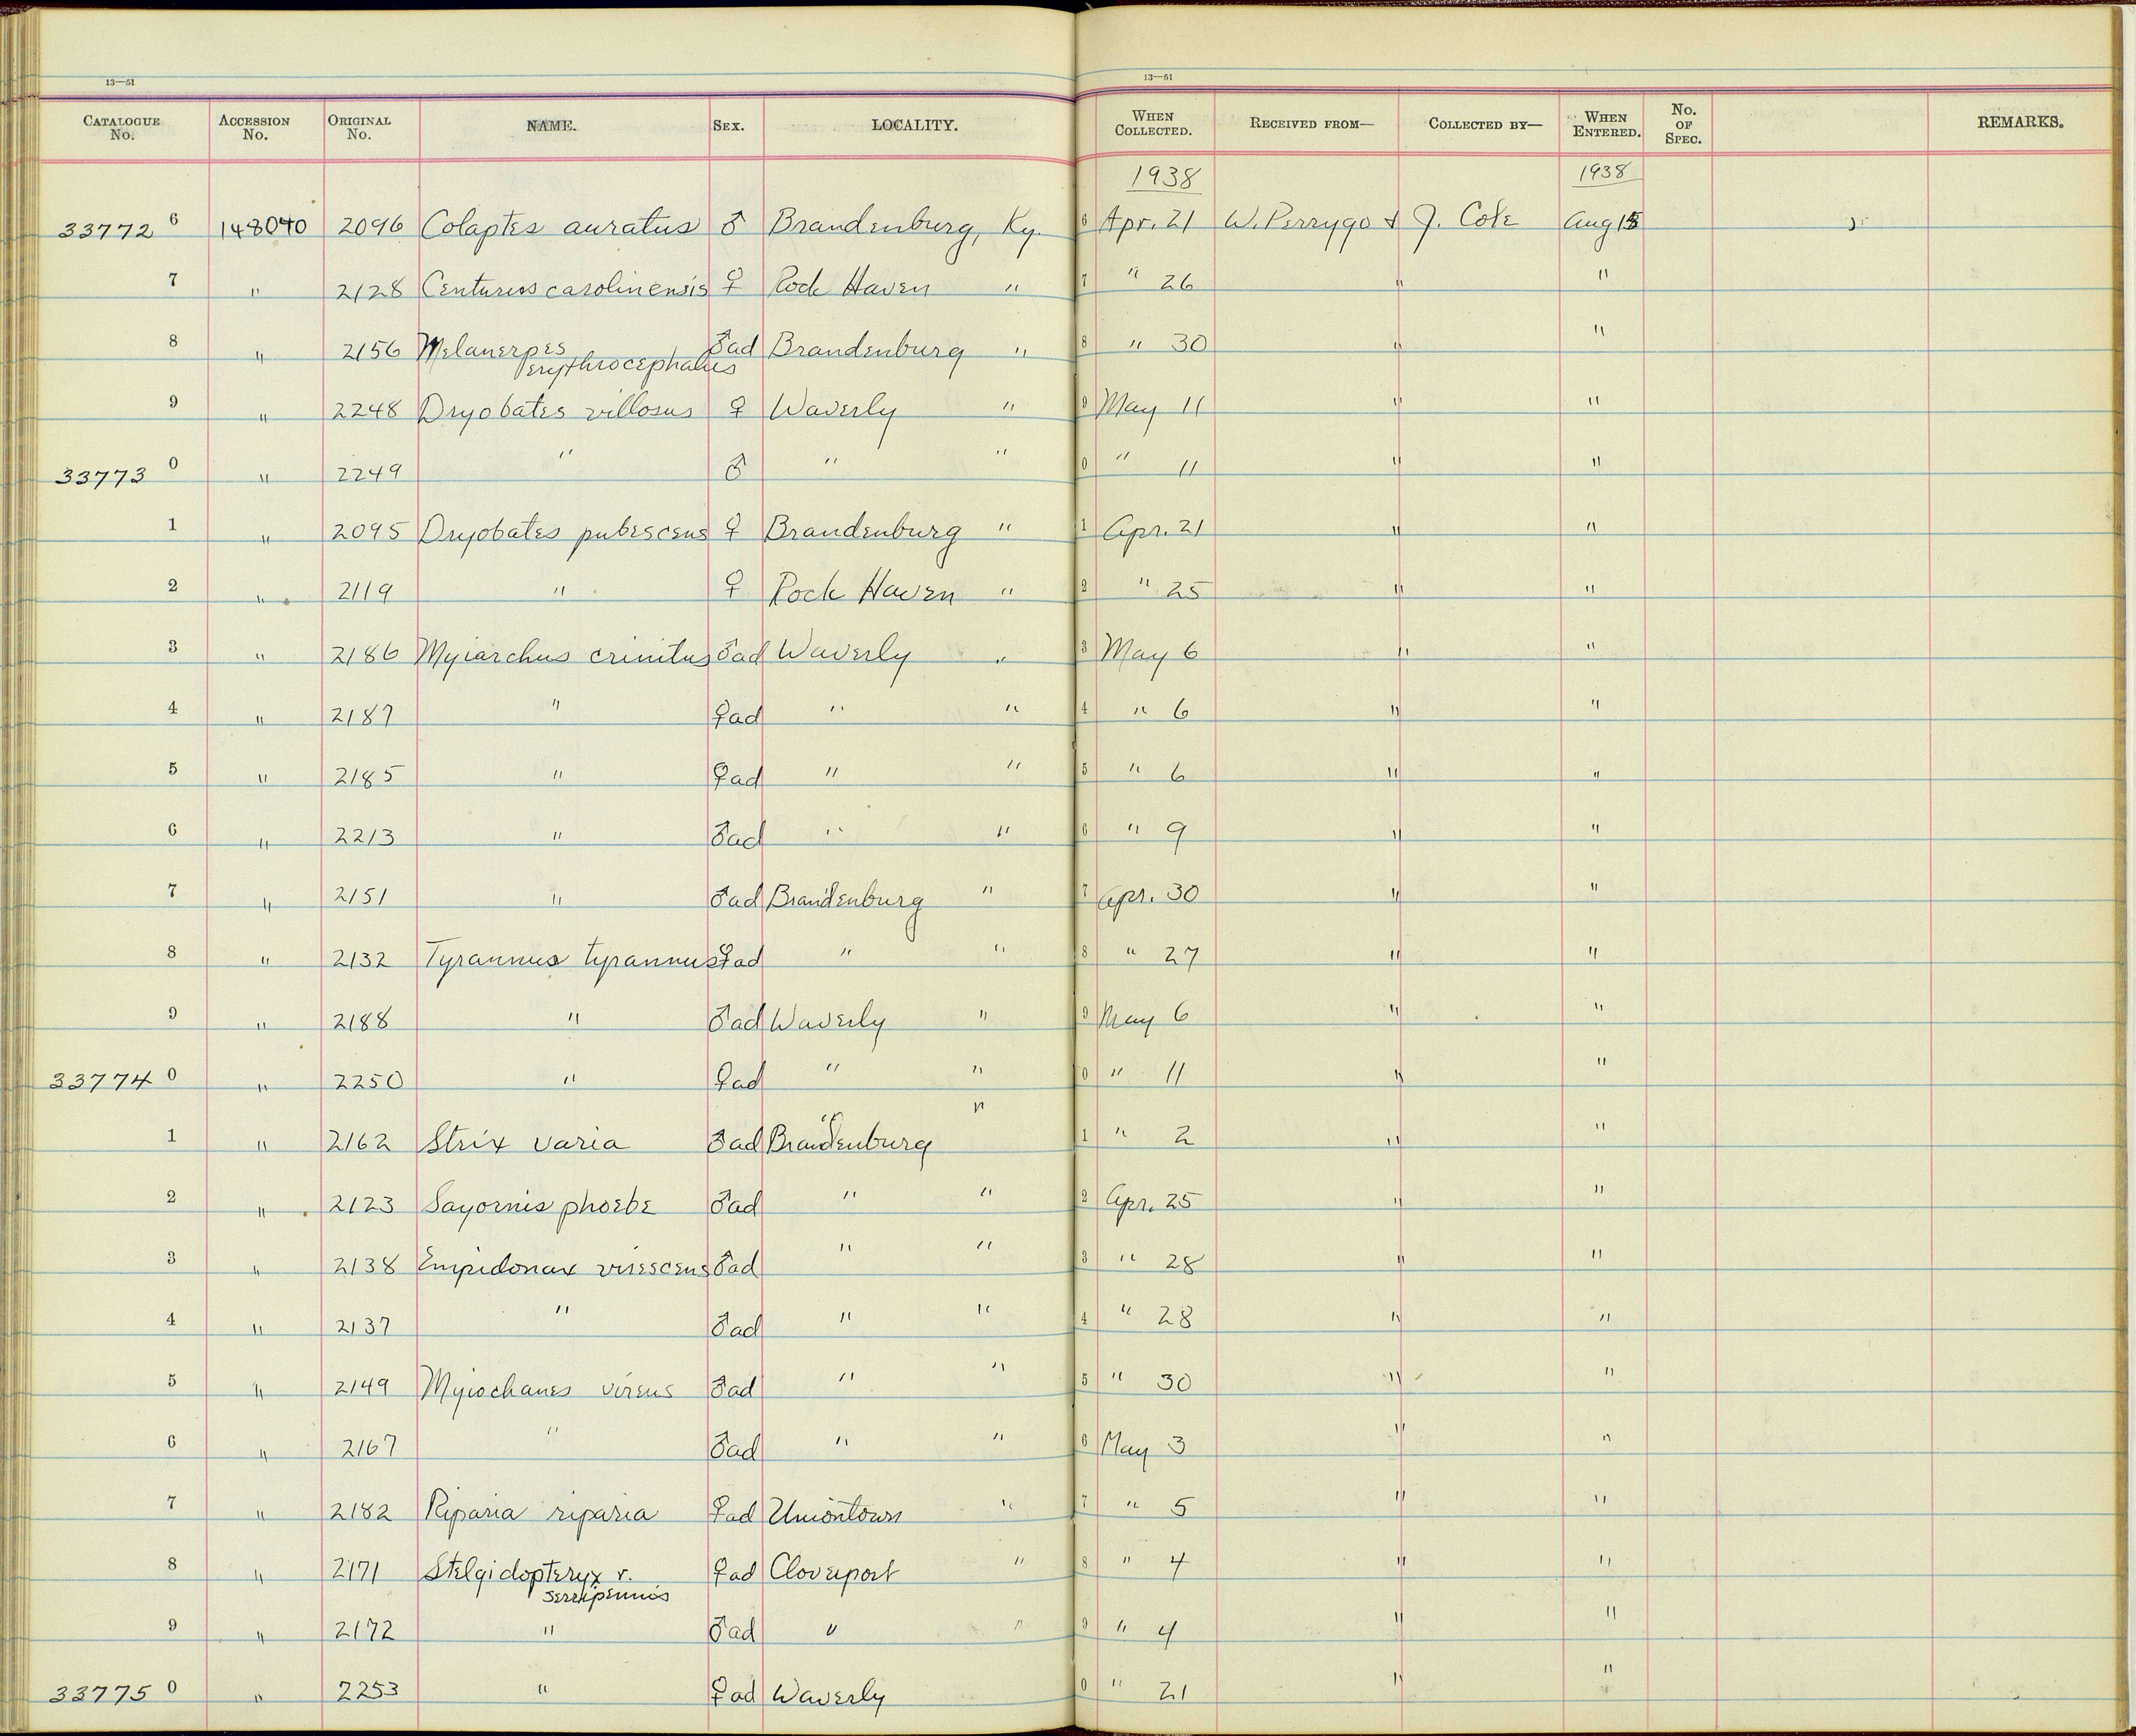 13—51 13—51
CATALOGUE No. ACCESSION No. ORIGINAL No. NAME. SEX. LOCALITY. WHEN COLLECTED. RECEIVED FROM— COLLECTED BY— WHEN ENTERED. No. OF SPEC. REMARKS.
1938 1938
33772 6 148040 2096 Colaptes auratus ♂ Brandenburg, Ky. 6 Apr. 21 W. Perrygo & J. Cole Aug 15
7 " 2128 Centurus carolinensis ♀ Rock Haven " 7 " 26 " "
8 " 2156 Melanerpes ♂ad Brandenburg " 8 " 30 " "
erythrocephalus
9 " 2248 Dryobates villosus ♀ Waverly " 9 May 11 " "
33773 0 " 2249 " ♂ " " 0 " 11 " "
1 " 2095 Dryobates pubescens ♀ Brandenburg " 1 Apr. 21 " "
2 " 2119 " ♀ Rock Haven " 2 " 25 " "
3 " 2186 Myiarchus crinitus ♂ad Waverly " 3 May 6 " "
4 " 2187 " ♀ad " " 4 " 6 " "
5 " 2185 " ♀ad " " 5 " 6 " "
6 " 2213 " ♂ad " " 6 " 9 " "
7 " 2151 " ♂ad Brandenburg " 7 Apr. 30 " "
8 " 2132 Tyrannus tyrannus ♀ad " " 8 " 27 " "
9 " 2188 " ♂ad Waverly " 9 May 6 " "
33774 0 " 2250 " ♀ad " " 0 " 11 " "
1 " 2162 Strix varia ♂ad Brandenburg " 1 " 2 " "
2 " 2123 Sayornis phoebe ♂ad " " 2 Apr. 25 " "
3 " 2138 Empidonax virescens ♂ad " " 3 " 28 " "
4 " 2137 " ♂ad " " 4 " 28 " "
5 " 2149 Myiochanes virens ♂ad " " 5 " 30 " "
6 " 2167 " ♂ad " " 6 May 3 " "
7 " 2182 Riparia riparia ♀ad Uniontown " 7 " 5 " "
8 " 2171 Stelgidopteryx r. ♀ad Cloverport " 8 " 4 " "
serripennis
9 " 2172 " ♂ad " " 9 " 4 " "
33775 0 " 2253 " ♀ad Waverly 0 " 21 " "